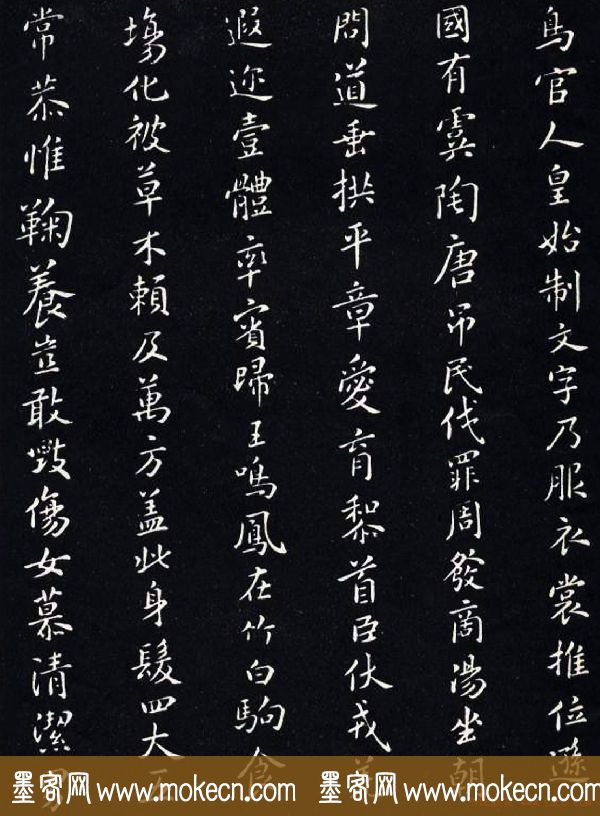 鳥官人皇始制文字乃服衣裳推位遜
國有虞陶唐吊民伐罪周發商湯坐朝
問道垂拱平章愛育黎首臣伏戎羌
遐迩壹體率賓歸王鳴鳳在竹白駒食
場化被草木賴及萬方盖此身髮四大五
常恭惟鞠養豈敢毀傷女慕清潔男
墨客网 www.mokecn.com 墨客网 www.mokecn.com